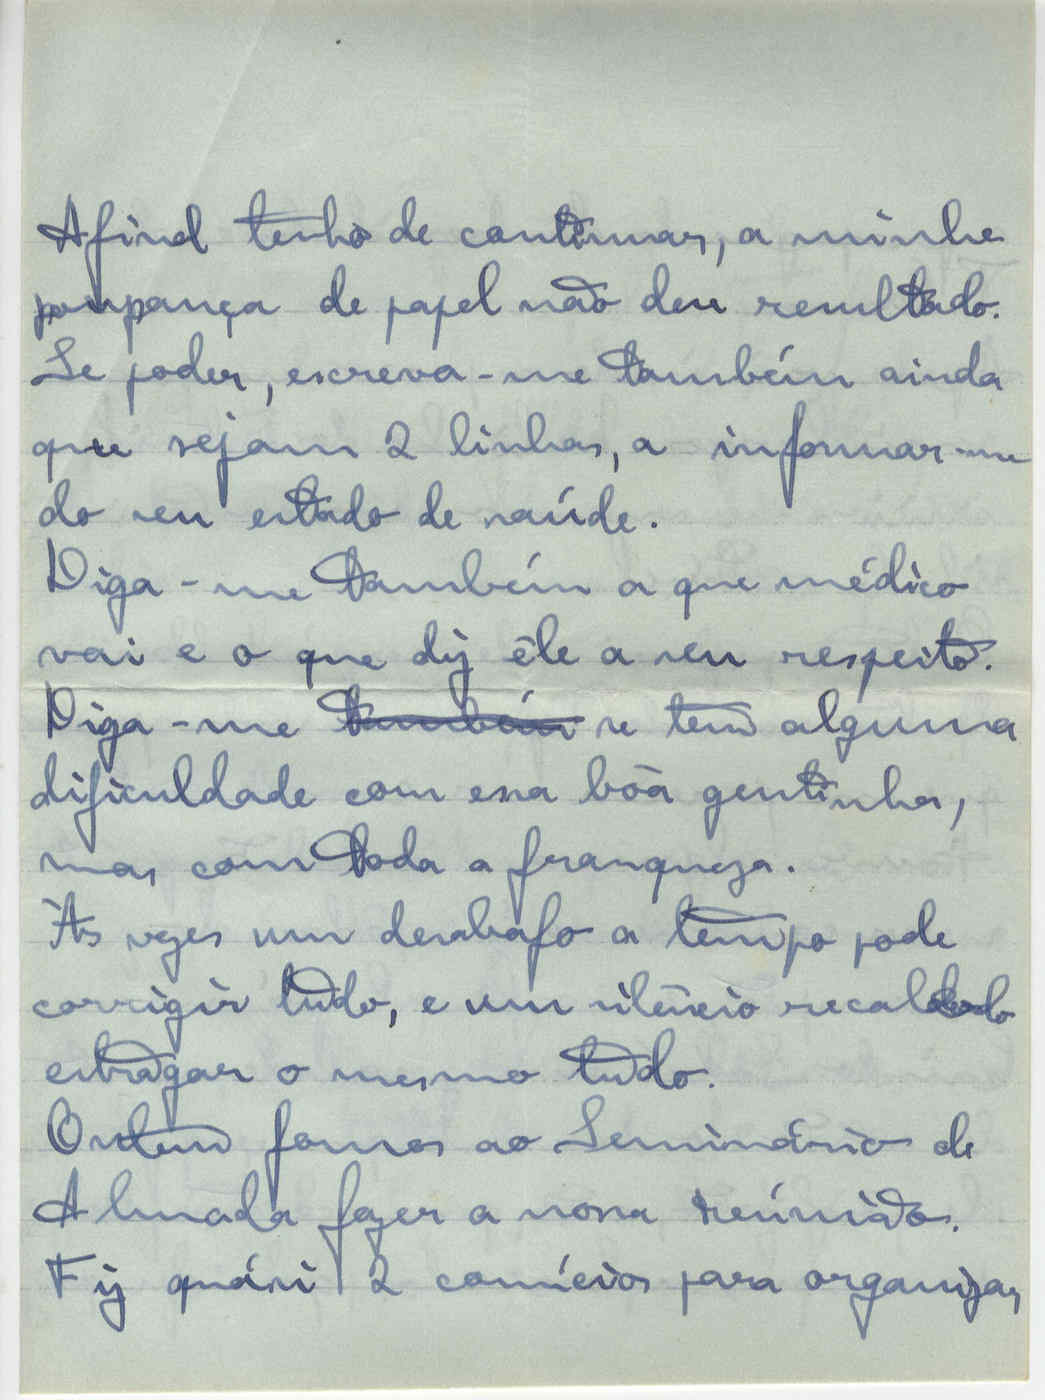 Afinal tenho de continuar, a minha
poupança de papel não deu resultado.
Se poder, escreva-me também ainda
que sejam 2 linhas, a informar-me
do seu estado de saúde.
Diga-me também a que médico
vai e o que diz êle a seu respeito.
Diga-me também se tem alguma
dificuldade com essa bôa gentinha,
mas com toda a franqueza.
Às vezes um desabafo a tempo pode
corrigir tudo, e um silêncio recalcado
estragar o mesmo tudo.
Ontem fomos ao Seminário de
Almada fazer a nossa reúnião.
Fiz quási 2 comícios para organizar